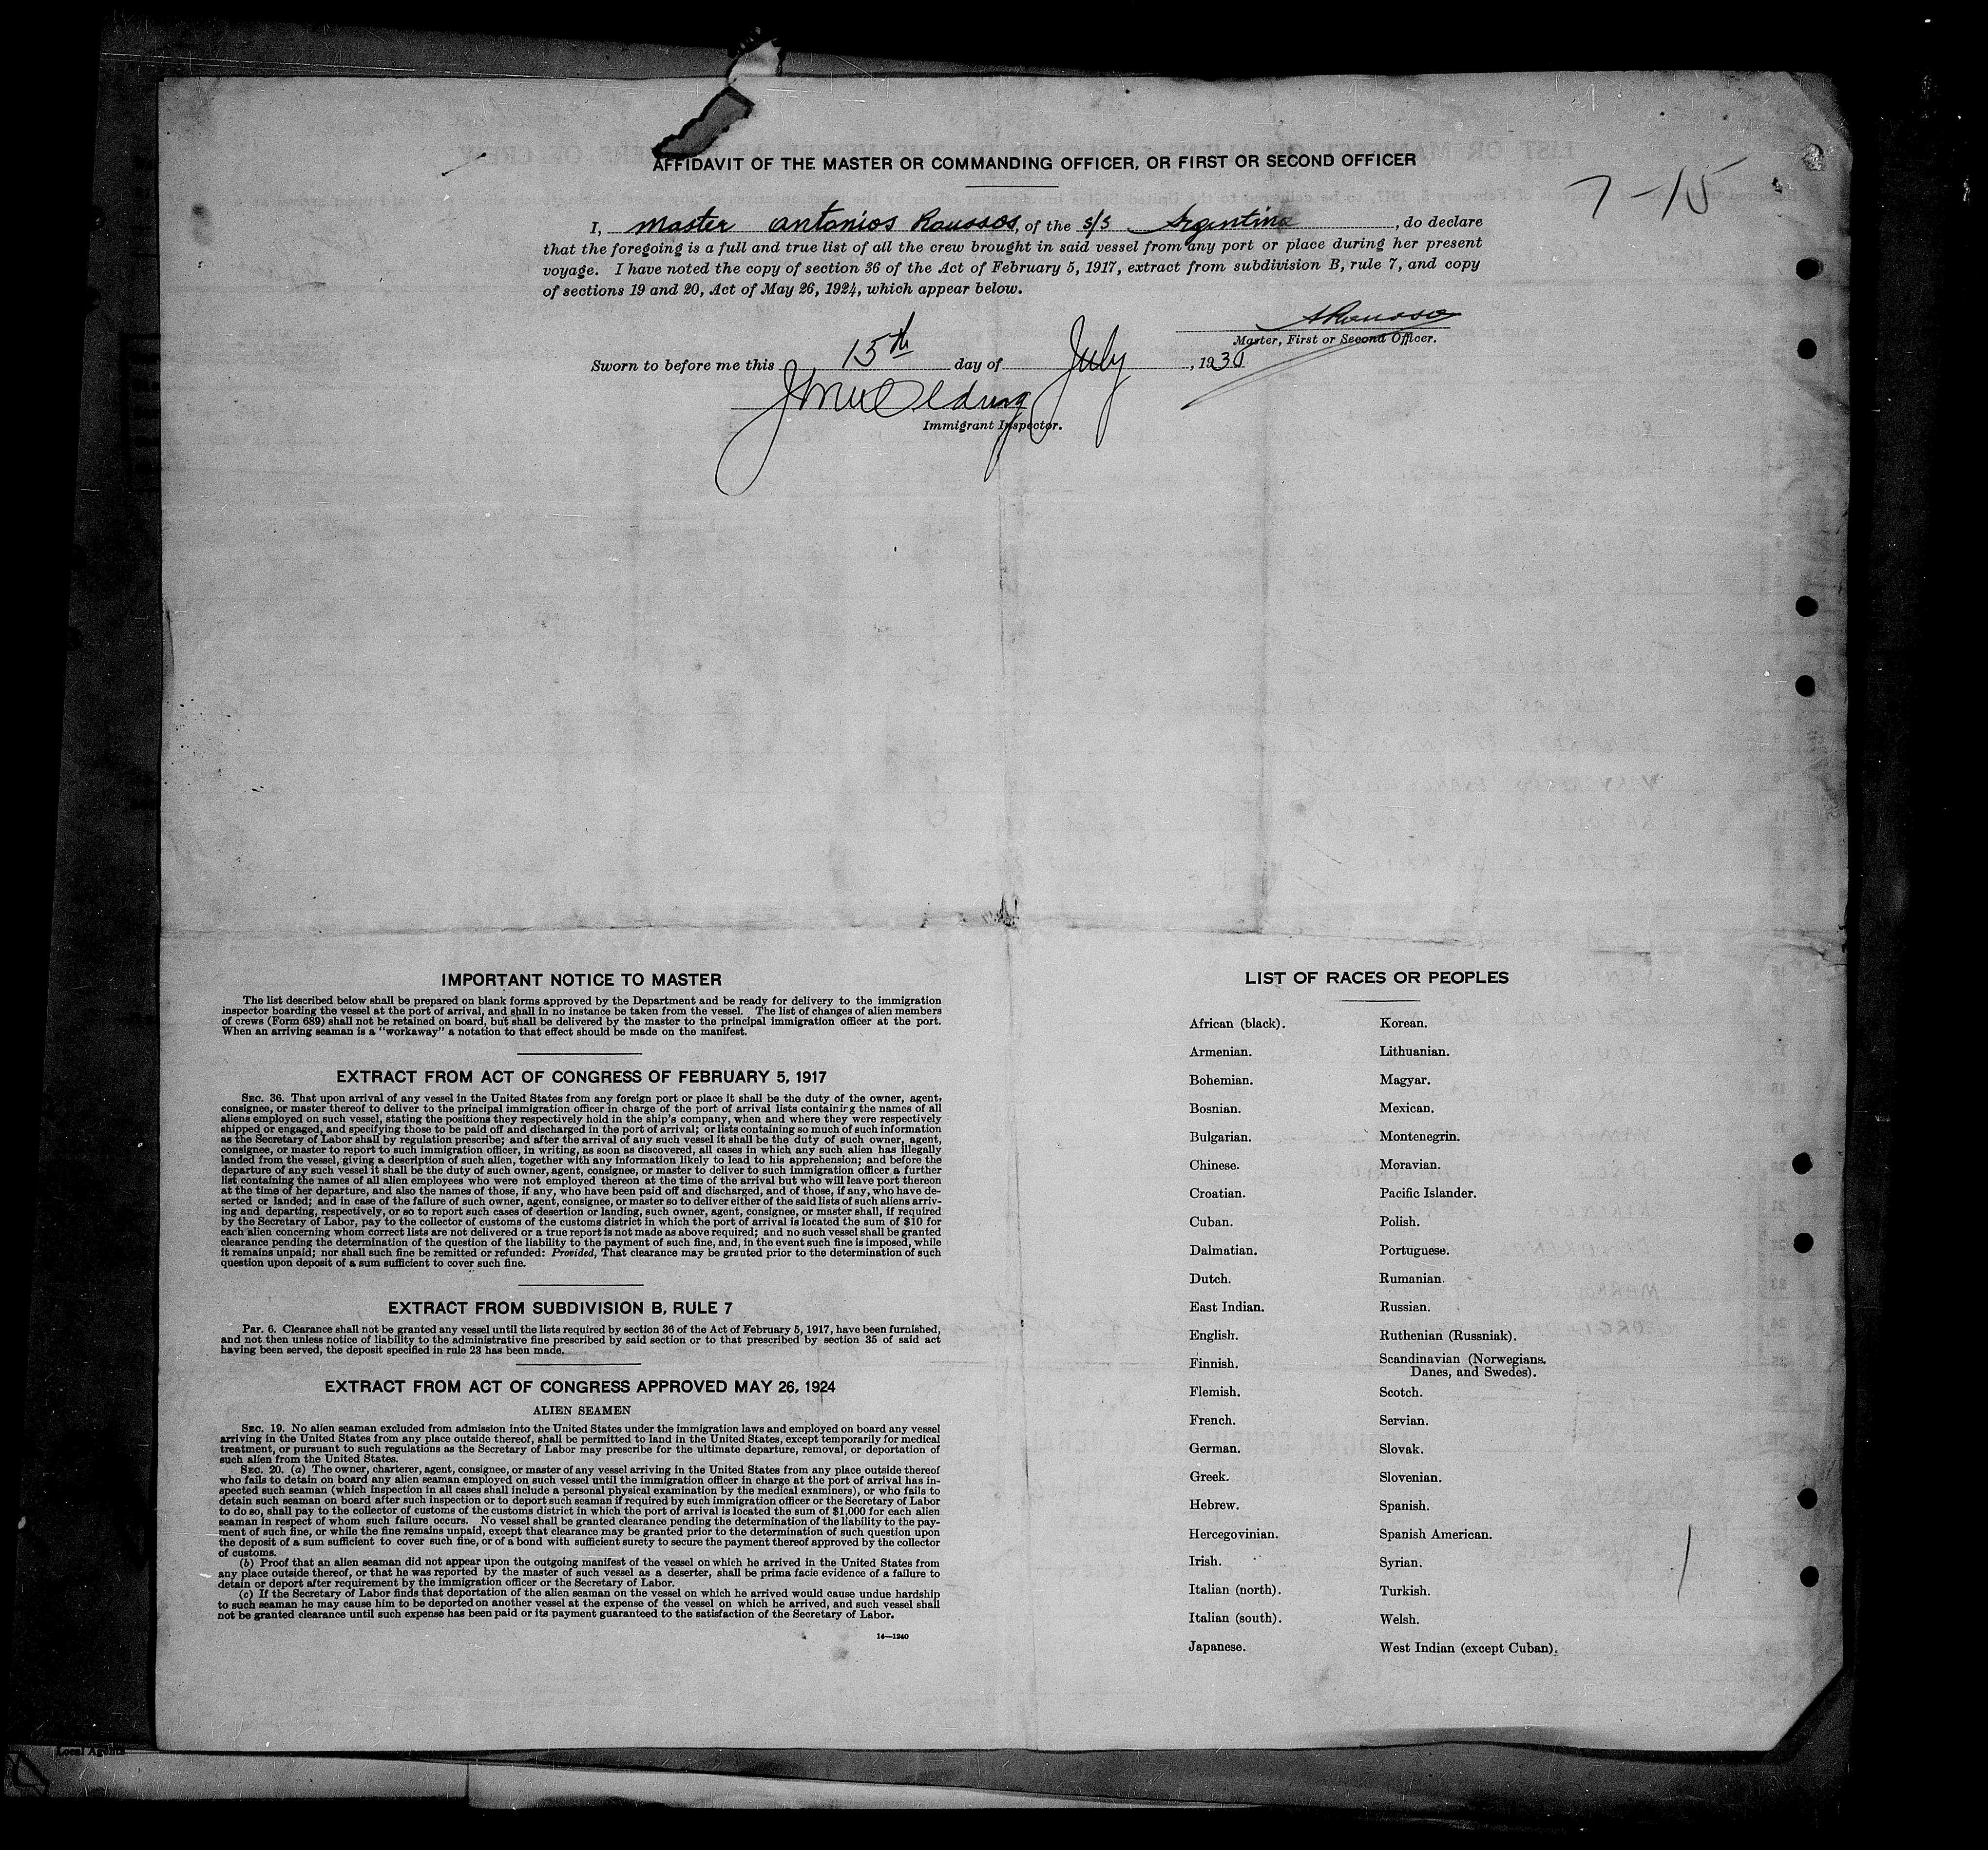 AFFIDAVIT OF THE MASTER OR COMMANDING OFFICER, OR FIRST OR SECOND OFFICER
7-15
I, Master Antonios Roussos, of the s/s Argentina, do declare
that the foregoing is a full and true list of all the crew brought in said vessel from any port or place during her present
voyage. I have noted the copy of section 36 of the Act of February 5, 1917, extract from subdivision B, rule 7, and copy
of sections 19 and 20, Act of May 26, 1924, which appear below.
ARoussos
Master, First or Second Officer.
Sworn to before me this 15th day of July, 1930
Immigrant Inspector.
IMPORTANT NOTICE TO MASTER
The list described below shall be prepared on blank forms approved by the Department and be ready for delivery to the immigration
inspector boarding the vessel at the port of arrival, and shall in no instance be taken from the vessel. The list of changes of alien members
of crews (Form 689) shall not be retained on board, but shall be delivered by the master to the principal immigration officer at the port.
When an arriving seaman is a "workaway" a notation to that effect should be made on the manifest.
EXTRACT FROM ACT OF CONGRESS OF FEBRUARY 5, 1917
SEC. 36. That upon arrival of any vessel in the United States from any foreign port or place it shall be the duty of the owner, agent,
consignee, or master thereof to deliver to the principal immigration officer in charge of the port of arrival lists containing the names of all
aliens employed on such vessel, stating the positions they respectively hold in the ship's company, when and where they were respectively
shipped or engaged, and specifying those to be paid off and discharged in the port of arrival; or lists containing so much of such information
as the Secretary of Labor shall by regulation prescribe; and after the arrival of any such vessel it shall be the duty of such owner, agent,
consignee, or master to report to such immigration officer, in writing, as soon as discovered, all cases in which any such alien has illegally
landed from the vessel, giving a description of such alien, together with any information likely to lead to his apprehension; and before the
departure of any such vessel it shall be the duty of such owner, agent, consignee, or master to deliver to such immigration officer a further
list containing the names of all alien employees who were not employed thereon at the time of the arrival but who will leave port thereon
at the time of her departure, and also the names of those, if any, who have been paid off and discharged, and of those, if any, who have de-
serted or landed; and in case of the failure of such owner, agent, consignee, or master so to deliver either of the said lists of such aliens arriv-
ing and departing, respectively, or so to report such cases of desertion or landing, such owner, agent, consignee, or master shall, if required
by the Secretary of Labor, pay to the collector of customs of the customs district in which the port of arrival is located the sum of $10 for
each alien concerning whom correct lists are not delivered or a true report is not made as above required; and no such vessel shall be granted
clearance pending the determination of the question of the liability to the payment of such fine, and, in the event such fine is imposed, while
it remains unpaid; nor shall such fine be remitted or refunded: Provided, That clearance may be granted prior to the determination of such
question upon deposit of a sum sufficient to cover such fine.
EXTRACT FROM SUBDIVISION B, RULE 7
Par. 6. Clearance shall not be granted any vessel until the lists required by section 36 of the Act of February 5, 1917, have been furnished,
and not then unless notice of liability to the administrative fine prescribed by said section or to that prescribed by section 35 of said act
having been served, the deposit specified in rule 23 has been made.
EXTRACT FROM ACT OF CONGRESS APPROVED MAY 26, 1924
ALIEN SEAMEN
SEC. 19. No alien seaman excluded from admission into the United States under the immigration laws and employed on board any vessel
arriving in the United States from any place outside thereof, shall be permitted to land in the United States, except temporarily for medical
treatment, or pursuant to such regulations as the Secretary of Labor may prescribe for the ultimate departure, removal, or deportation of
such alien from the United States.
SEC. 20. (a) The owner, charterer, agent, consignee, or master of any vessel arriving in the United States from any place outside thereof
who fails to detain on board any alien seaman employed on such vessel until the immigration officer in charge at the port of arrival has in-
spected such seaman (which inspection in all cases shall include a personal physical examination by the medical examiners), or who fails to
detain such seaman on board after such inspection or to deport such seaman if required by such immigration officer or the Secretary of Labor
to do so, shall pay to the collector of customs of the customs district in which the port of arrival is located the sum of $1,000 for each alien
seaman in respect of whom such failure occurs. No vessel shall be granted clearance pending the determination of the liability to the pay-
ment of such fine, or while the fine remains unpaid, except that clearance may be granted prior to the determination of such question upon
the deposit of a sum sufficient to cover such fine, or of a bond with sufficient surety to secure the payment thereof approved by the collector
of customs.
(b) Proof that an alien seaman did not appear upon the outgoing manifest of the vessel on which he arrived in the United States from
any place outside thereof, or that he was reported by the master of such vessel as a deserter, shall be prima facie evidence of a failure to
detain or deport after requirement by the immigration officer or the Secretary of Labor.
(c) If the Secretary of Labor finds that deportation of the alien seaman on the vessel on which he arrived would cause undue hardship
to such seaman he may cause him to be deported on another vessel at the expense of the vessel on which he arrived, and such vessel shall
not be granted clearance until such expense has been paid or its payment guaranteed to the satisfaction of the Secretary of Labor.
14—1240
LIST OF RACES OR PEOPLES
African (black).
Armenian.
Bohemian.
Bosnian.
Bulgarian.
Chinese.
Croatian.
Cuban.
Dalmatian.
Dutch.
East Indian.
English.
Finnish.
Flemish.
French.
German.
Greek.
Hebrew.
Hercegovinian.
Irish.
Italian (north).
Italian (south).
Japanese.
Korean.
Lithuanian.
Magyar.
Mexican.
Montenegrin.
Moravian.
Pacific Islander.
Polish.
Portuguese.
Rumanian.
Russian.
Ruthenian (Russniak).
Scandinavian (Norwegians,
Danes, and Swedes).
Scotch.
Servian.
Slovak.
Slovenian.
Spanish.
Spanish American.
Syrian.
Turkish.
Welsh.
West Indian (except Cuban).
Local Agents